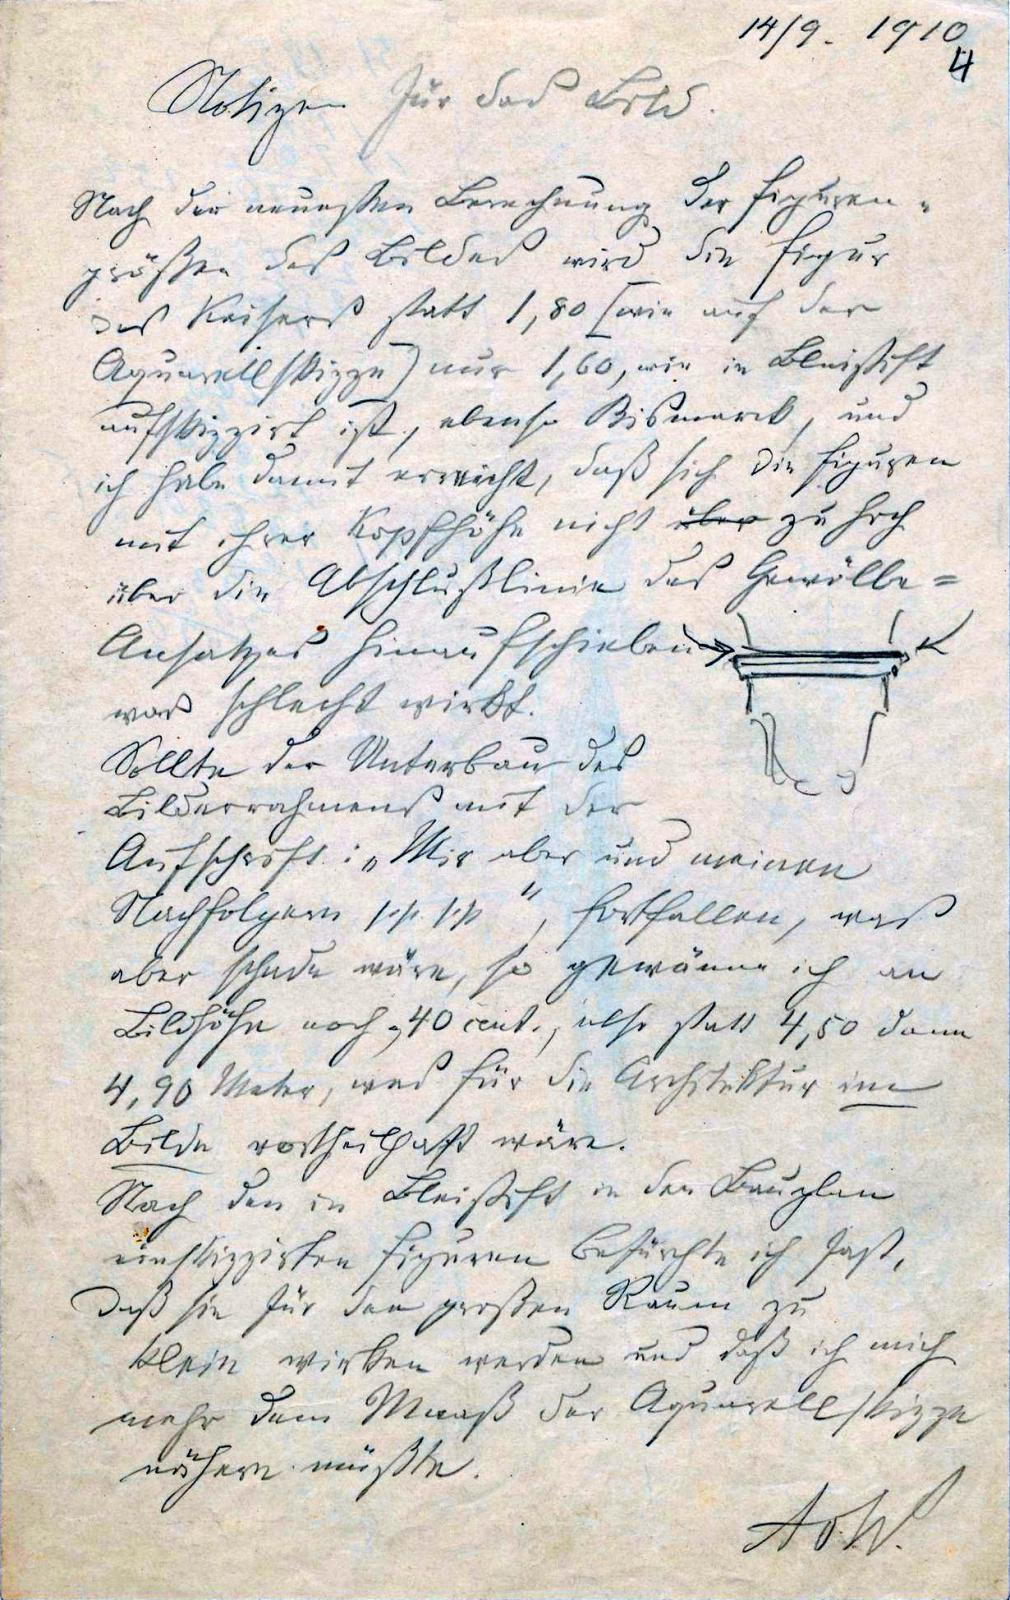 14/9. 1910
4
Notizen für das Bild.
Nach der neuesten Berechnung der Figuren-
größen des Bildes wird die Figur
des Kaisers statt 1,80 [wie auf der
Aquarellskizze] nur 1,60, wie in Bleistift
aufskizzirt ist, ebenso Bismarck, und
ich habe damit erreicht, daß sich die Figuren
mit ihrer Kopfhöhe nicht über zu hoch
über die Abschlußlinie des Gewölbe=
Ansatzes hinaufschieben
was schlecht wirkt.
Sollte der Unterbau des
Bilderrahmens mit der
Aufschrift: „Mir aber und meinen
Nachfolgern p.p. p.p.", fortfallen, was
aber schade wäre, so gewänne ich an
Bildhöhe noch 40 cent., also statt 4,50 dann
4,90 Meter, was für die Architektur im
Bilde vortheilhaft wäre.
Nach den in Bleistift in den Bauplan
einskizzirten Figuren befürchte ich fast,
daß sie für den großen Raum zu
klein wirken werden und daß ich mich
mehr dem Maaß der Aquarellskizze
nähern müßte.
AvW.